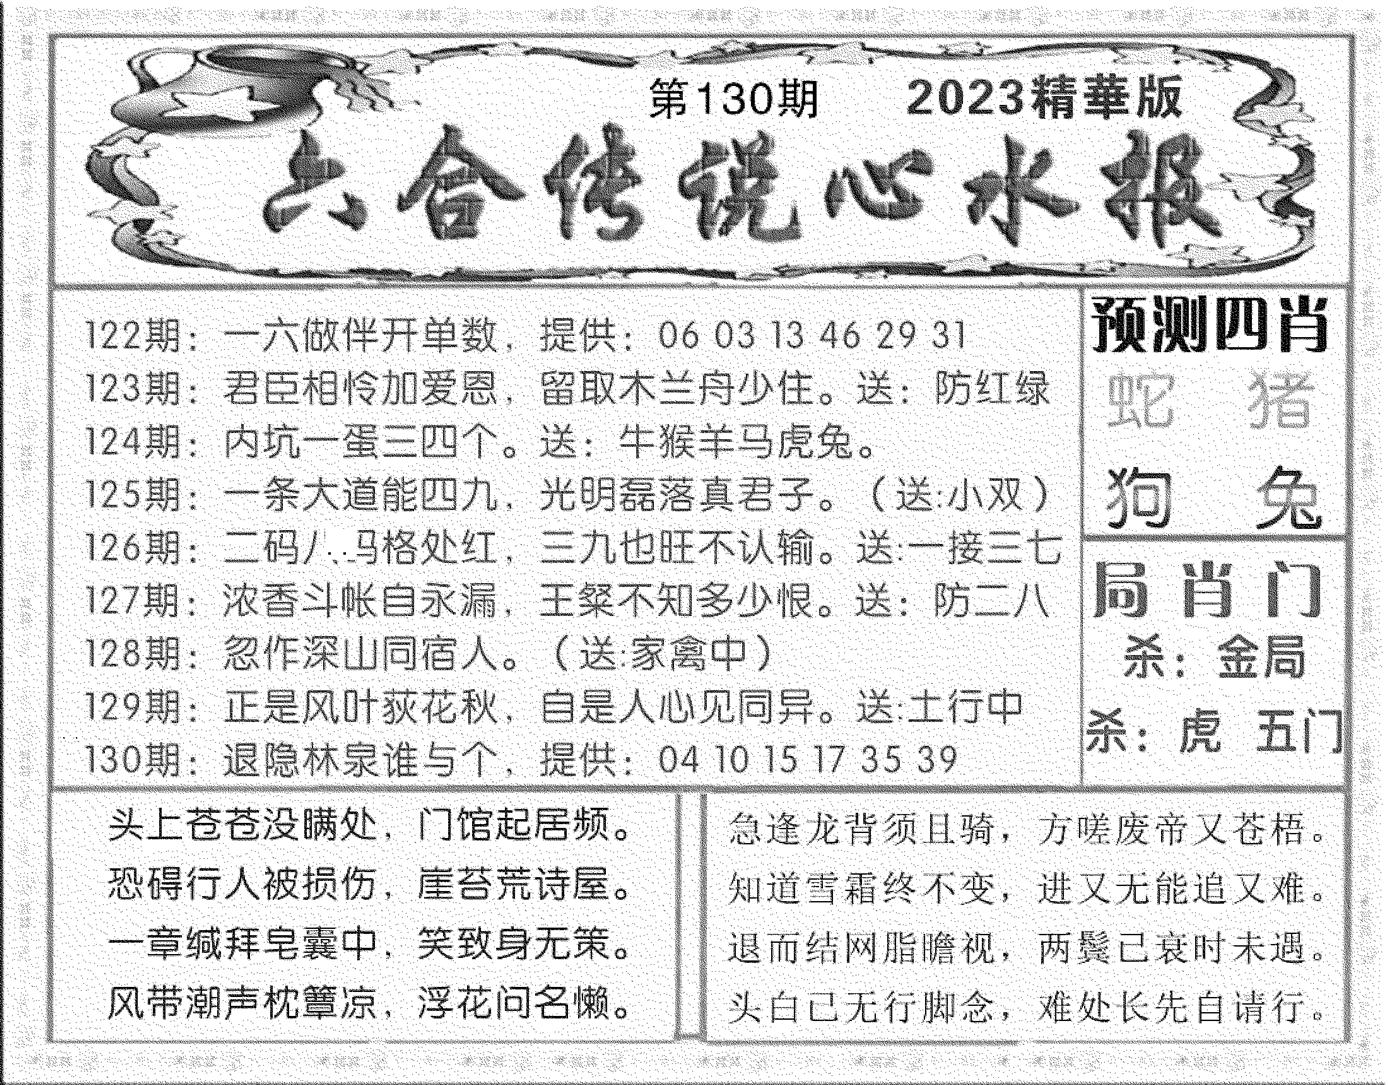 第130期 2023精華版
六合传说心水报
122期：一六做伴开单数，提供：06 03 13 46 29 31
123期：君臣相怜加爱恩，留取木兰舟少住。送：防红绿
124期：内坑一蛋三四个。送：牛猴羊马虎兔。
125期：一条大道能四九，光明磊落真君子。（送:小双）
126期：二码八..马格处红，三九也旺不认输。送:一接三七
127期：浓香斗帐自永漏，王粲不知多少恨。送：防二八
128期：忽作深山同宿人。（送:家禽中）
129期：正是风叶荻花秋，自是人心见同异。送:土行中
130期：退隐林泉谁与个，提供：04 10 15 17 35 39
预测四肖
蛇 猪
狗 兔
局肖门
杀：金局
杀：虎 五门
头上苍苍没瞒处，门馆起居频。
恐碍行人被损伤，崖苔荒诗屋。
一章缄拜皂囊中，笑致身无策。
风带潮声枕簟凉，浮花问名懒。
急逢龙背须且骑，方嗟废帝又苍梧。
知道雪霜终不变，进又无能追又难。
退而结网脂瞻视，两鬓已衰时未遇。
头白已无行脚念，难处长先自请行。